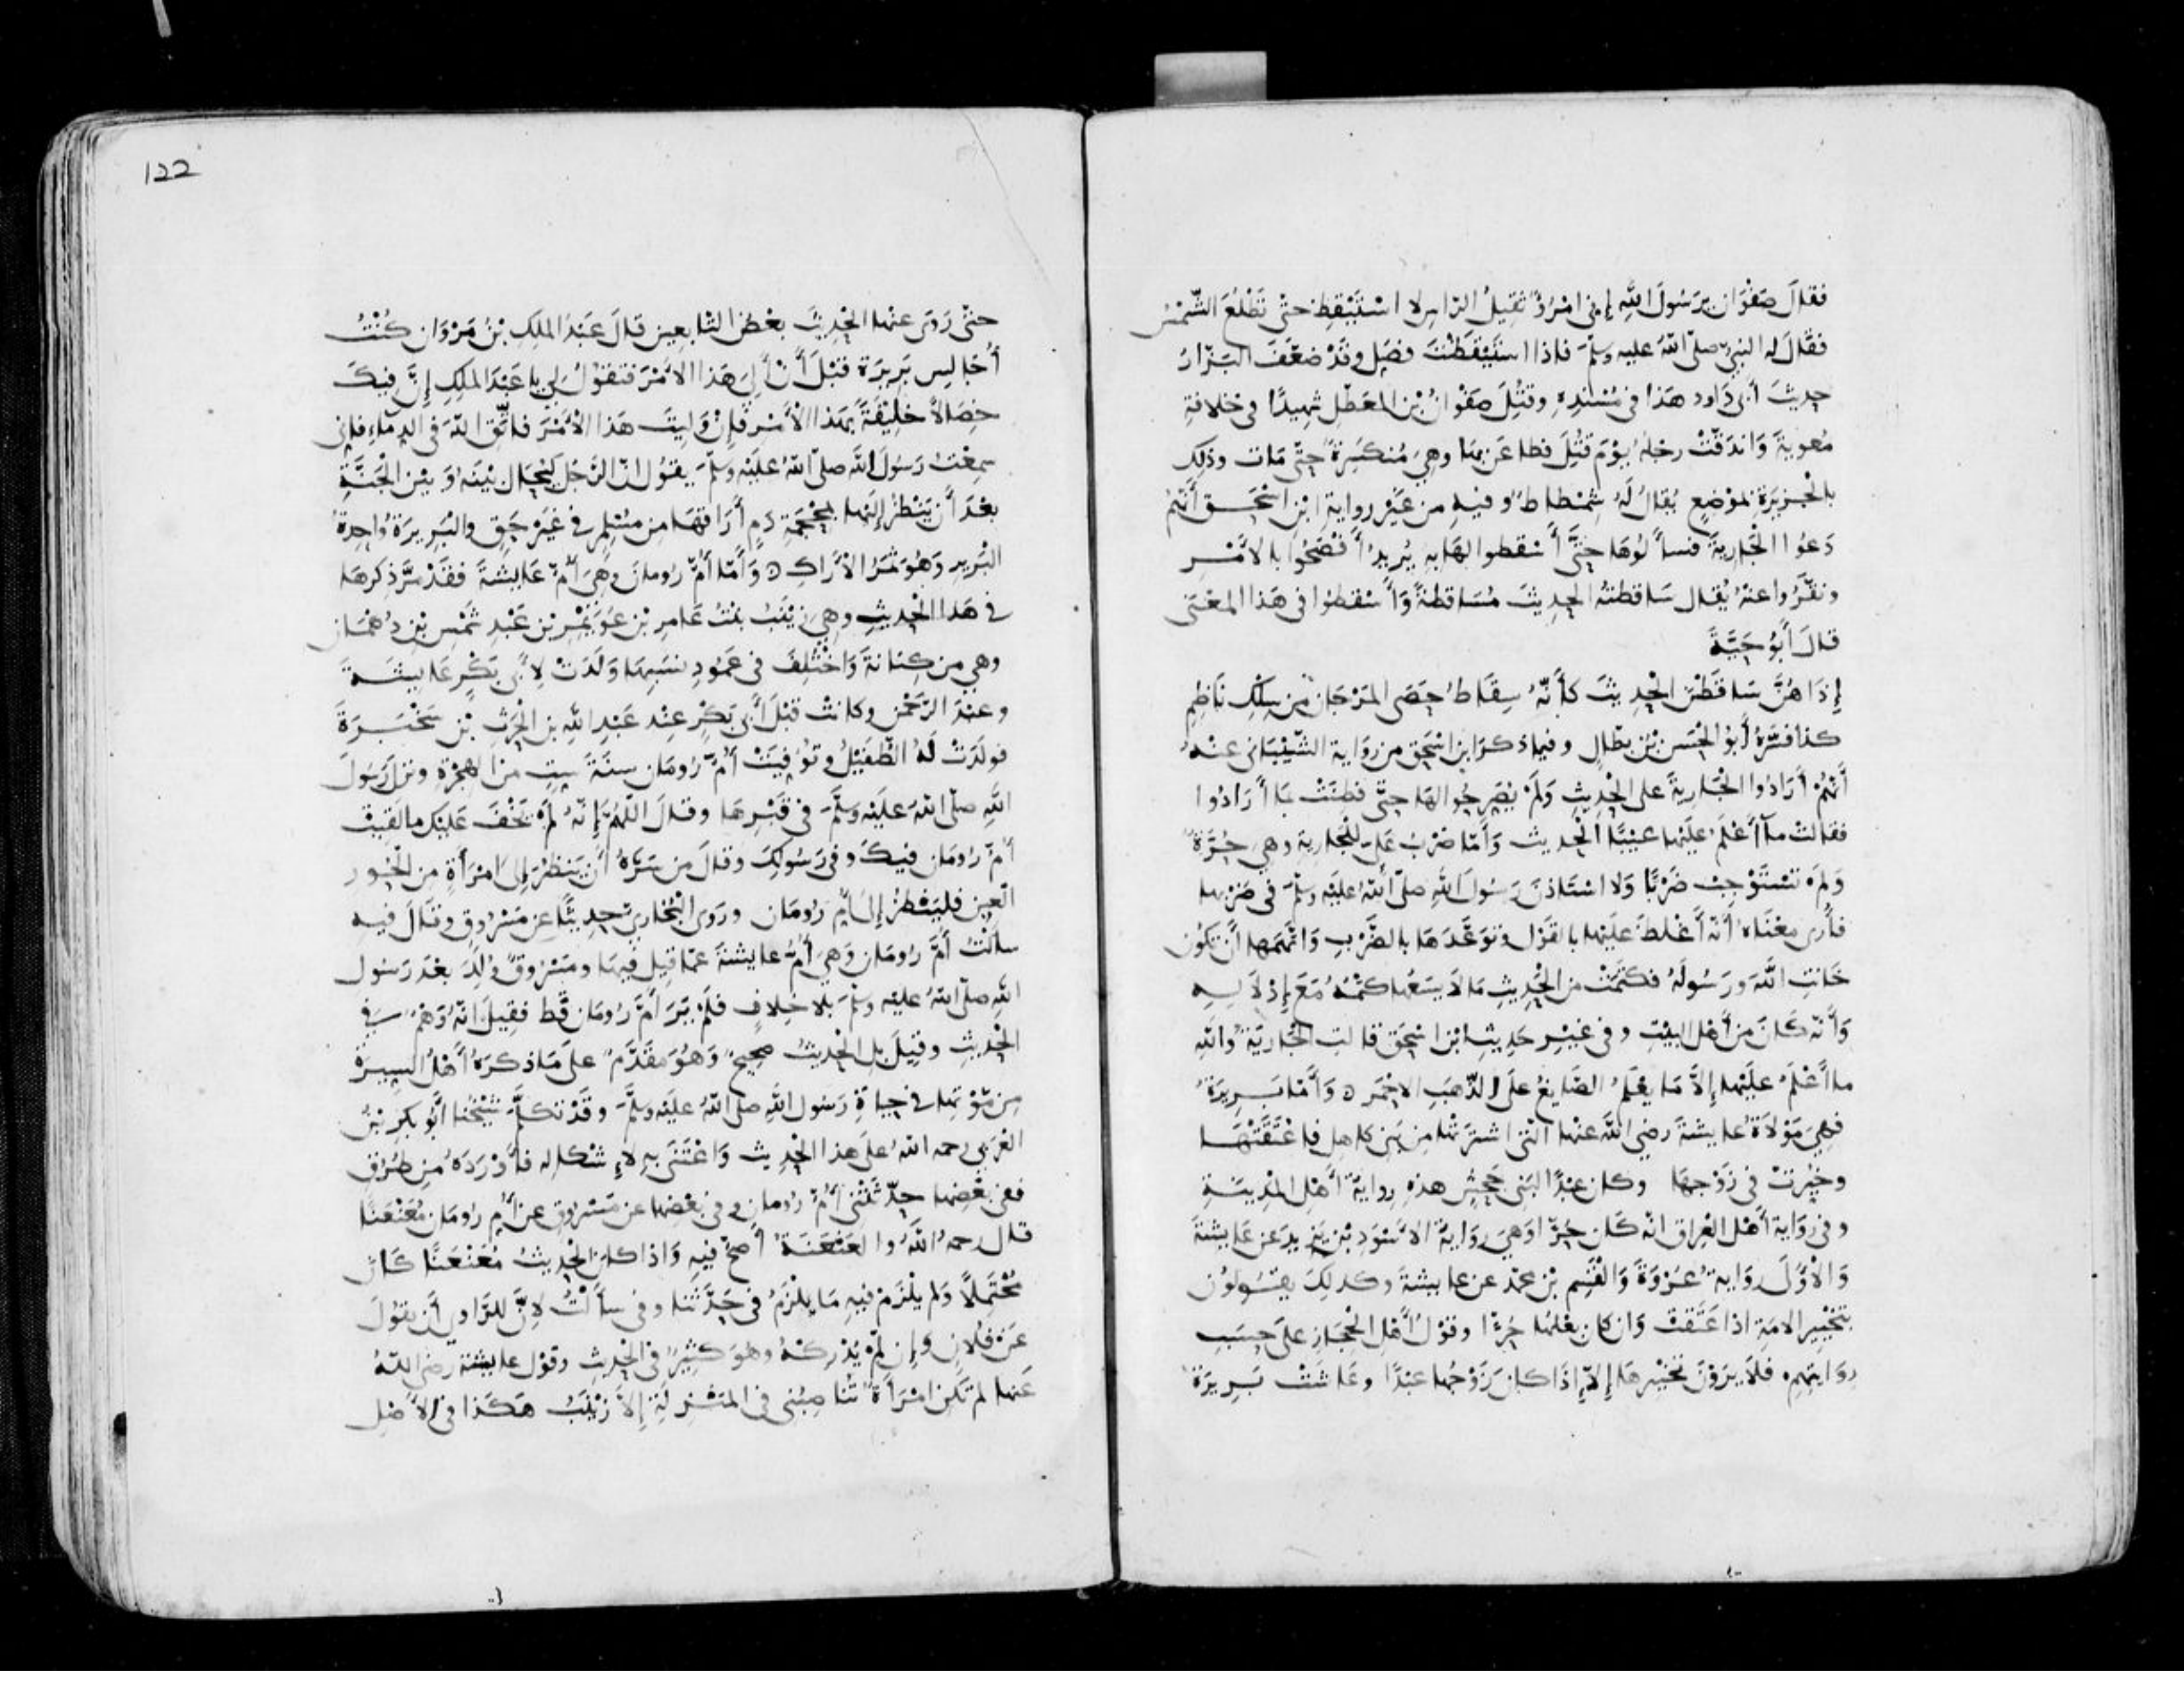 فقالَ صَفْوَان يرَسُولَ اللهِ إِنى امْرُؤٌ ثقِيلُ الرّاسِ لا اسْتَيْقِظ حتّى تَطْلُعَ الشّمْسُ
فقَالَ له النبيّ صلّى اللهُ عليه وسلّمَ فاذا استَيْقَظْتَ فصَلِ وقَدْ ضعّفَ البَزّارُ
حدِيثَ أَبى دَاود هَذا فى مُسْنَدِهِ وقُتِلَ صَفْوَانُ بْن المعَطّلِ شهِيدًا فى خلافةِ
مُعوِيةَ وَاندَقّتْ رجْلُهُ يوْمَ قُتِلَ فطاعَن بهَا وهِيَ مُنكَسِرَة حتّى مَات وذلِك
بالْجزيرَة بموْضِعٍ يُقالُ لَهُ شِمْطاط وفيهِ من غَيْر رواية ابْن اسْحَق أَنّهُم
دَعُوا الْجَارِيةَ فسأَلُوهَا حتَّى أَسْقطوا لهَا بهِ يُرِيدُ أَفْصَحُوا بالأمْرِ
ونقّرُوا عنْهُ يُقال سَاقطتُه الحدِيثَ مُسَاقطةً وَأَسْقطوُا فى هَذا المعْنَى
قالَ أَبُو حَيَّةَ
إِذَا هُنَّ سَاقَطْنَ الْحدِيثَ كأَنّهُ سِقَاطُ حصَى المرْجَان مِن سِلْكِ نَاظِمِ
كذا فسّرَهُ أَبوُ الْحَسَن بْن بطّالٍ وفيما ذكرَ ابن اسْحَق من رِوَاية الشّيْبَانى عنْهُ
أَنّهُمْ أَرَادُوا الْجَارِيةَ على الْحدِيثِ وَلَمْ يُصَرِحُوا لهَا حتّى فطنَتْ بمَا أرَادُوا
فقالتْ مآ أعْلَمُ علَيْها عَيْبًا الْحدِيث وَأَمّا ضَرْبُ عَلىّ للْجَارِية وهيَ حُرَّةٌ
وَلَمْ تسْتَوْجِبْ ضَرْبًا وَلا اسْتَاذنَ رَسُولَ اللهِ صلّى اللهُ عليْهِ وسلّمَ فى ضَرْبها
فأُرى معْنَاهُ أنّه أَغْلظَ عليْها بالقَوْل وتوَعّدَهَا بالضّرْبِ وَاتّهَمَها أَن تكُون
خَانتِ اللهَ ورَسُولَهُ فكتَمَتْ مِن الْحَدِيثِ مَا لا يسَعُها كتْمُهُ مَعَ إِدْلالِهِ
وَأَنّه كَانَ مِن أَهْل البَيْتِ وفى غَيْرِ حَدِيثِ ابْن اسْحَق قالتِ الْجَارِيَة والله
ما أَعْلَمُ علَيْها إِلاّ مَا يعْلَمُ الصّايغُ علَى الذّهَبِ الاحْمَر ۞ وَأَمّا بَرِيرَةُ
فهِيَ مَوْلاَةُ عايشةَ رضي الله عنْها الّتى اشترَتْها مِن بَنى كاهِلٍ فاعْتَقَتْهَا
وخُيّرتْ فى زَوْجهَا وكان عبْدًا لبَنى جَحْشٍ هذِهِ رِوايةُ أهْل المدِينَةِ
وفى رِوَاية أَهْل العِرَاق انّه كَان حُرّا وَهيَ رِوَايةُ الاسْوَدِ بْن يَزِيدَ عن عَايشةَ
وَالأُولَى رِوَايةُ عُرْوَةَ وَالْقٰسِم بْن محمّد عن عايشةَ وكذلِكَ يقُولُون
بتَخْيِير الامَةِ اذا عَتَقتْ وَان كان بعْلُها حُرًّا وقوْلُ أَهْل الْحِجَاز علَى حسَبِ
رِوَايتِهِم فلاَ يرَوْنَ تخْيِيرَهَا إِلاّ إِذَا كانَ زَوْجُها عَبْدًا وعَاشتْ بَرِيرَةُ
122
حتّى رَوَى عنها الْحدِيثَ بعْضُ التابعِين قالَ عَبْدُ الملِك بْنُ مَرْوَان كُنْتُ
أُجَالِس بَرِيرَة قبْلَ أَنْ أَلِيَ هَذا الأَمْرَ فتقوُلُ لِي يا عَبْدَ الملِكِ إِنَّ فيكَ
خصَالاً خلِيقَةً بهَذا الأَمْرِ فإِنْ وَلِيتَ هَذا الأَمْرَ فاتَّقِ اللهَ فى الدِمَاءِ فإِنى
سمِعْتُ رَسُولَ الله صلّى اللهُ علَيْهِ وَسلّمَ يقوُل انّ الرّجُل لَيُحَالُ بيْنَهُ وَ بيْن الْجَنّةِ
بعْدَ أَن يَنْظُرَ إِلَيْها بمِحْجَمَةِ دَمٍ أَرَاقهَا مِن مُسْلِمٍ فى غَيْرِ حَقٍ والبَرِيرَةُ وَاحِدةُ
الْبَرِير وَهُوَ ثمَرُ الأَرَاكِ ۞ وَأَمّا أمُّ رُومانَ وهِيَ أُمّ عَايشةَ فقَدْ مرَّ ذكرهَا
فى هَذا الْحدِيثِ وهِيَ زيْنَبُ بنتُ عَامِرِ بْن عُوَيْمِرِ بن عَبْدِ شَمْسِ بْن دُهْمَان
وهي من كِنَانةَ وَاخْتُلِفَ فى عَمُودِ نسَبِها وَلَدَتْ لأَبى بَكْرٍ عَايشَةَ
وعبْدَ الرّحْمٰن وكانتْ قبْلَ أَبى بَكْرٍ عِنْد عَبْدِ اللهِ بن الْحٰرِثِ بْن سَخْبَرَةَ
فولَدَتْ لَهُ الطّفَيْلَ وتوُفِيَتْ أُمُّ رُومَان سنَةَ سِتٍ من الهجْرَةِ ونزلَ رَسُولُ
اللهِ صلّى اللهُ علَيْهِ وَسلَّمَ فى قَبْرِهَا وقالَ اللّهُمّ إِنّهُ لَمْ يَخْفَ عَلَيْك مالَقِيَتْ
أُمّ رُومَان فيكَ وفى رَسُولِكَ وقالَ مَن سَرّهُ أَن يَنظُرَ إِلى امْرَأَةٍ مِن الْحُورِ
الْعِين فليَنْظُرْ إِلَى أُمّ رُومَان ورَوَى الْبُخَارِيّ حدِيثًا عن مَسْرُوقٍ وقَالَ فيهِ
سأَلْتُ أُمَّ رُومَان وَهِيَ أُمُّ عايشةَ عمّا قِيل فيهَا ومَسْرُوقٌ وُلِدَ بعْدَ رَسُول
اللهِ صلّى اللهُ عليْه وسلّمَ بلا خِلافٍ فلَمْ يَرَ أُمَّ رُومَان قَط فقِيلَ انّهُ وَهْمٌ فى
الْحدِيثِ وقِيلَ بل الْحدِيثُ صحِيحٌ وَهُوَ مقَدَّمٌ علَى مَا ذكرَهُ أَهْلُ السِيرَةِ
مِن مَوْتها فى حيَاةِ رَسُول اللهِ صلى اللهُ علَيْه وسلَّمَ وقَدْ تكلَّمَ شَيْخُنا أَبُو بكرِ بْنُ
العَرَبى رحمه اللهُ علَى هذا الْحدِيث وَاعْتَنَى بهِ لإِشْكالِه فأَوْرَدَهُ مِن طُرُقٍ
ففى بعْضِها حدّثَتْنى أُمّ رُومان وفى بعْضِها عن مَسْرُوقٍ عن أُمّ رُومَان مُعَنْعَنًا
قال رحمهُ اللهُ والعَنْعَنَةُ أَصحّ فيهِ وَاذا كانَ الْحدِيثُ مُعَنْعَنًا كَان
مُحْتَمِلاً وَلم يلْزَمْ فيهِ مَا يلْزَمُ فى حَدَّثنَا وفى سأَلْتُ لأَنّ للرّاوِي أَن يقُولَ
عَنْ فُلانٍ وَإِن لَمْ يُدْرِكْهُ وهوَ كثِيرٌ فى الْحدِيثِ وقوْل عايشة رضي اللهُ
عَنها لم تكن امْرَأَةٌ تُناصِبُنى فى المنْزِلَةِ إِلاّ زَيْنَبُ هَكَذا فى الأَصْل